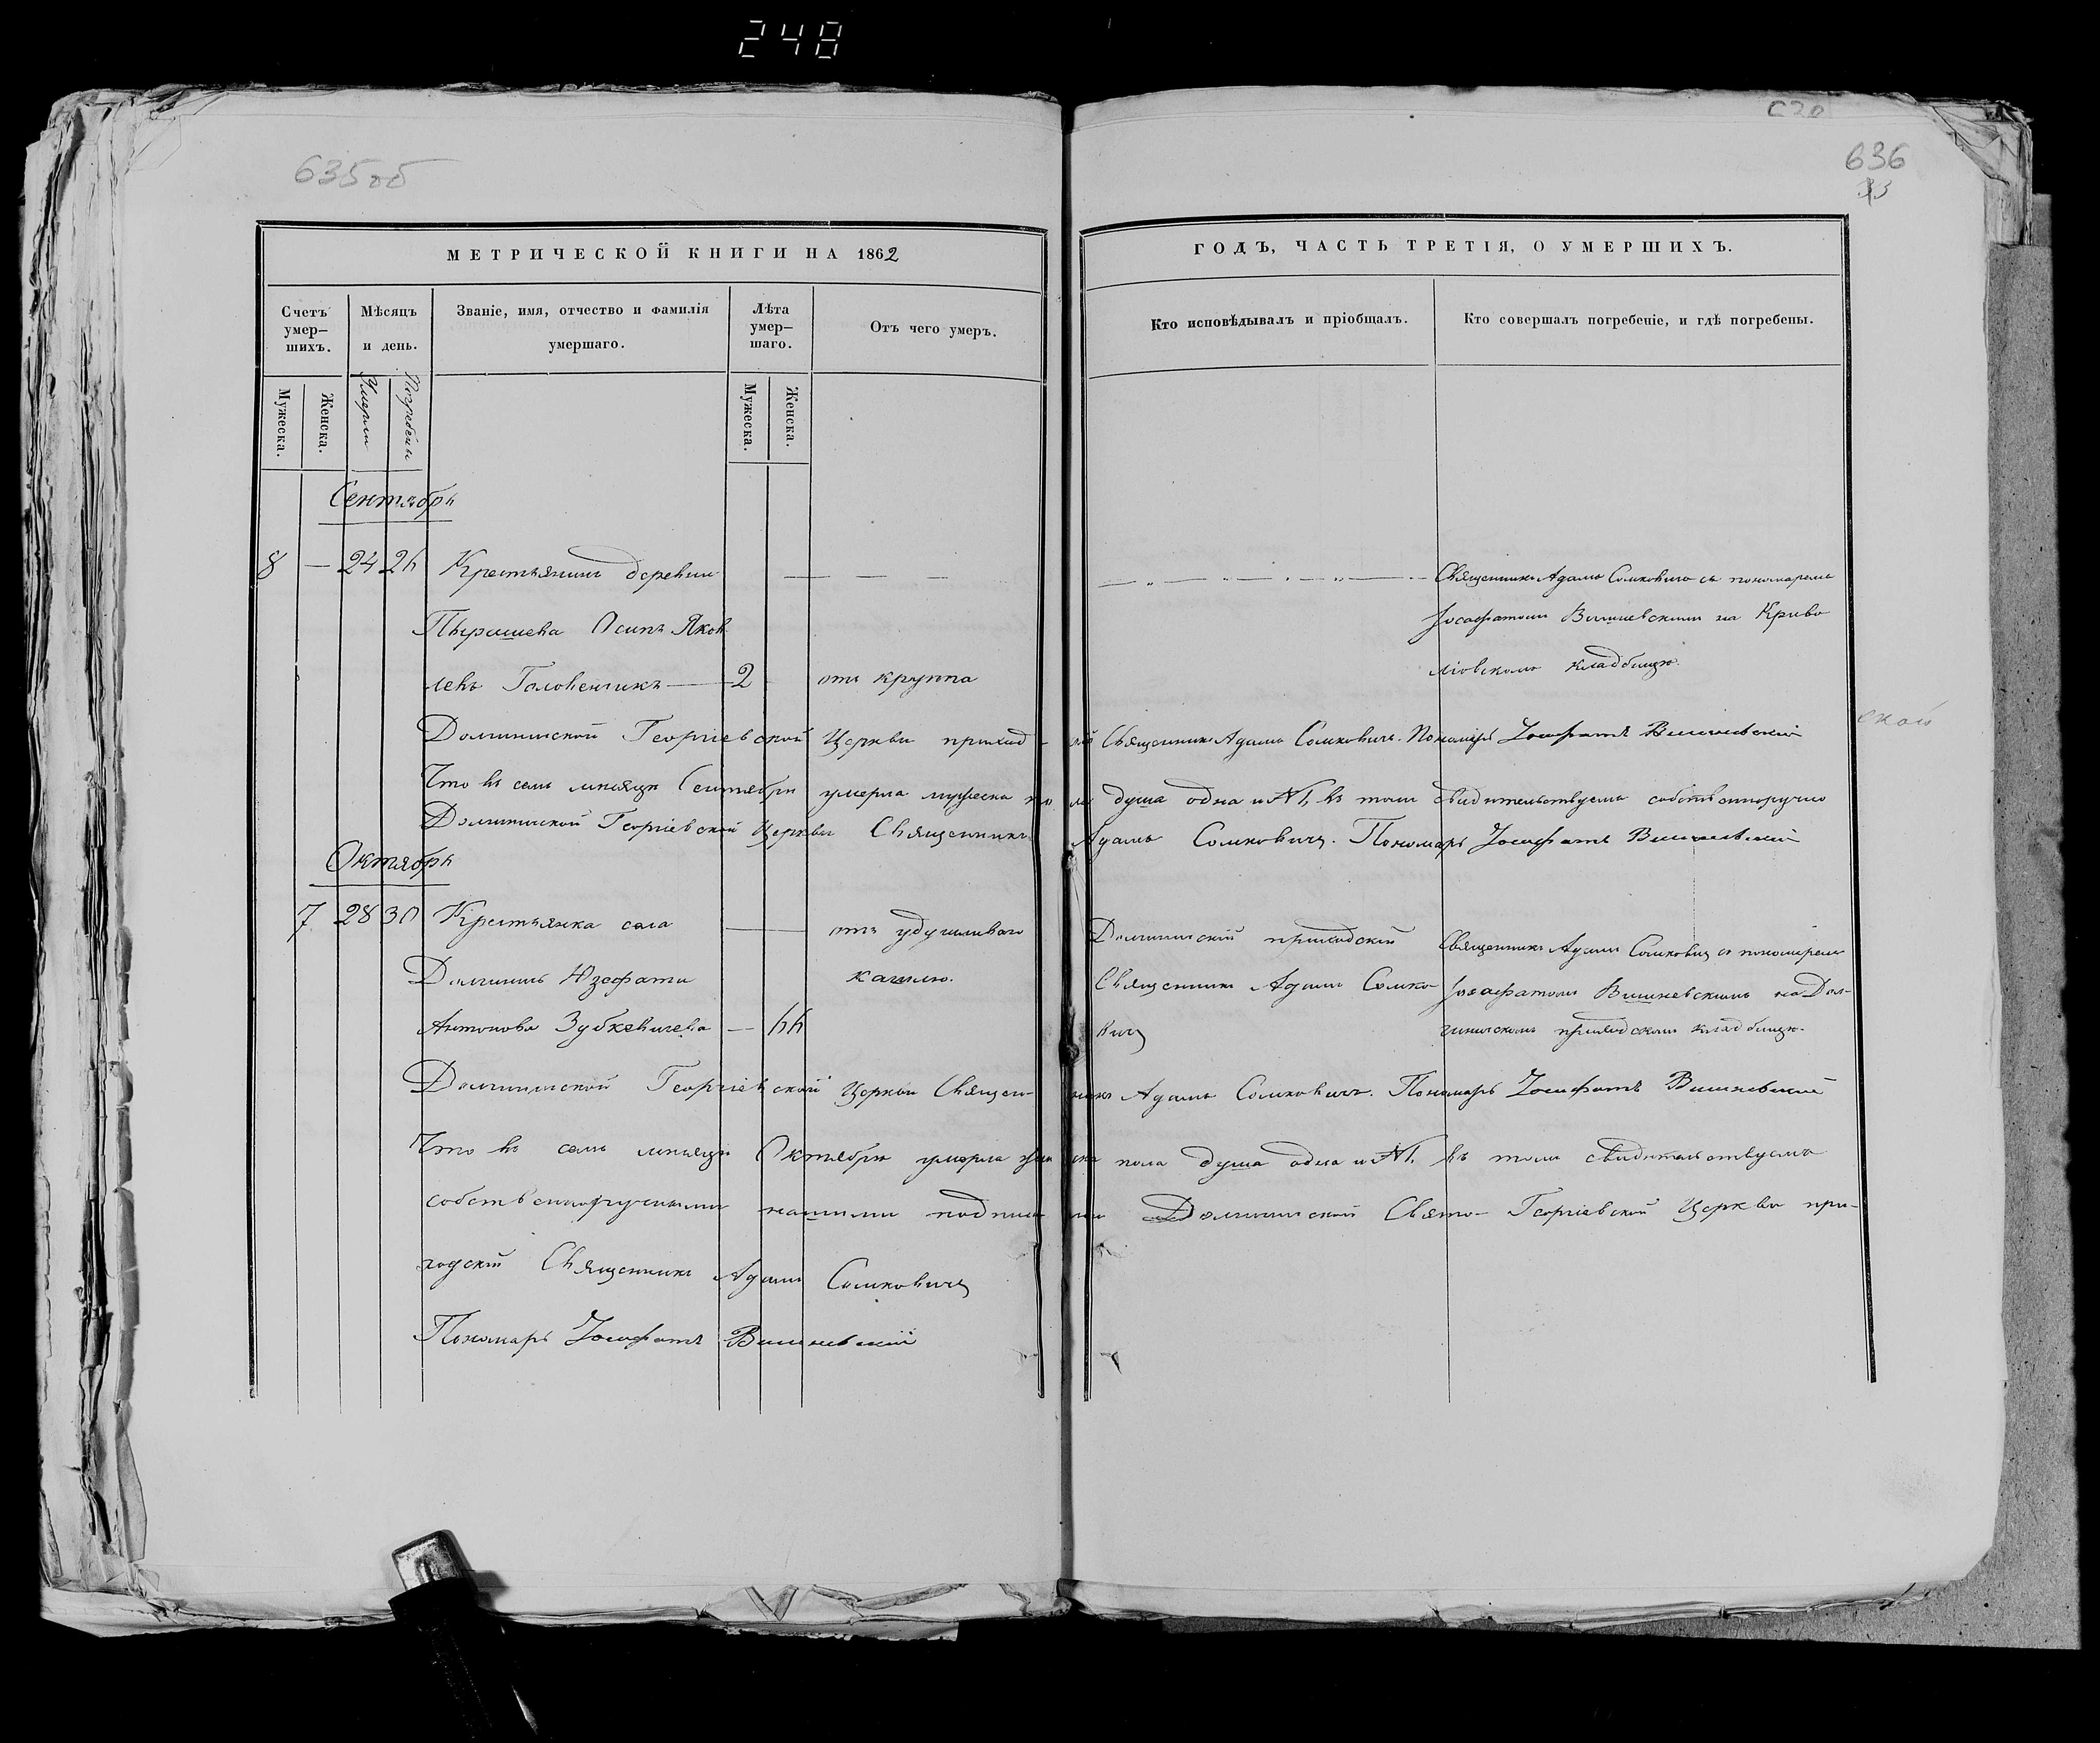 248
635об
636
МЕТРИЧЕСКОЙ КНИГИ НА 1862
ГОДЪ, ЧАСТЬ ТРЕТІЯ, О УМЕРШИХЪ.
Счетъ умер- шихъ.
Мѣсяцъ и день.
Званіе, имя, отчество и фамилія умершаго.
Лѣта умер- шаго.
Отъ чего умеръ.
Кто исповѣдывалъ и пріобщалъ.
Кто совершалъ погребеніе, и гдѣ погребены.
Мужеска.
Женска.
Умерли
Погребены
Мужеска.
Женска.
Сентябрь
8 — 24 26 Крестьянинъ деревни
Осипъ Яков
левъ Головенчикъ — 2 отъ круппа
Священникъ Адамъ Сомковичъ съ пономаремъ
Іосафатомъ Вишневскимъ на Криво
кладбищѣ.
Долгиновской Георгіевской Церкви приход- Священникъ Адамъ Сомковичъ. Пономарь Іосафатъ Вишневскій
ской
Что въ семъ мѣсяцѣ Сентябрѣ умерла мужеска по ла душа одна и въ томъ свидѣтельствуемъ собственноручно
Георгіевской Церкви Священникъ Адамъ Сомковичъ. Пономарь Іосафатъ Вишневскій
Октябрь
7 28 30 Крестьянка села
Юзефата
Антонова Зубкевичева —
отъ удушливаго
кашлю.
приходскій
Священникъ Адамъ Сомко
вичъ
Священникъ Адамъ Сомковичъ съ пономаремъ
Іосафатомъ Вишневскимъ на Дол-
гиновскомъ приходскомъ кладбищѣ.
Георгіевской Церкви Священ- никъ Адамъ Сомковичъ. Пономарь Іосафатъ Вишневскій
Что въ семъ мѣсяцѣ Октябрѣ умерла жен ска пола душа одна и въ томъ свидѣтельствуемъ
собственноручными нашими подпися ми Свято- Георгіевской Церкви при-
ходскій Священникъ Адамъ Сомковичъ
Пономарь Іосафатъ Вишневскій